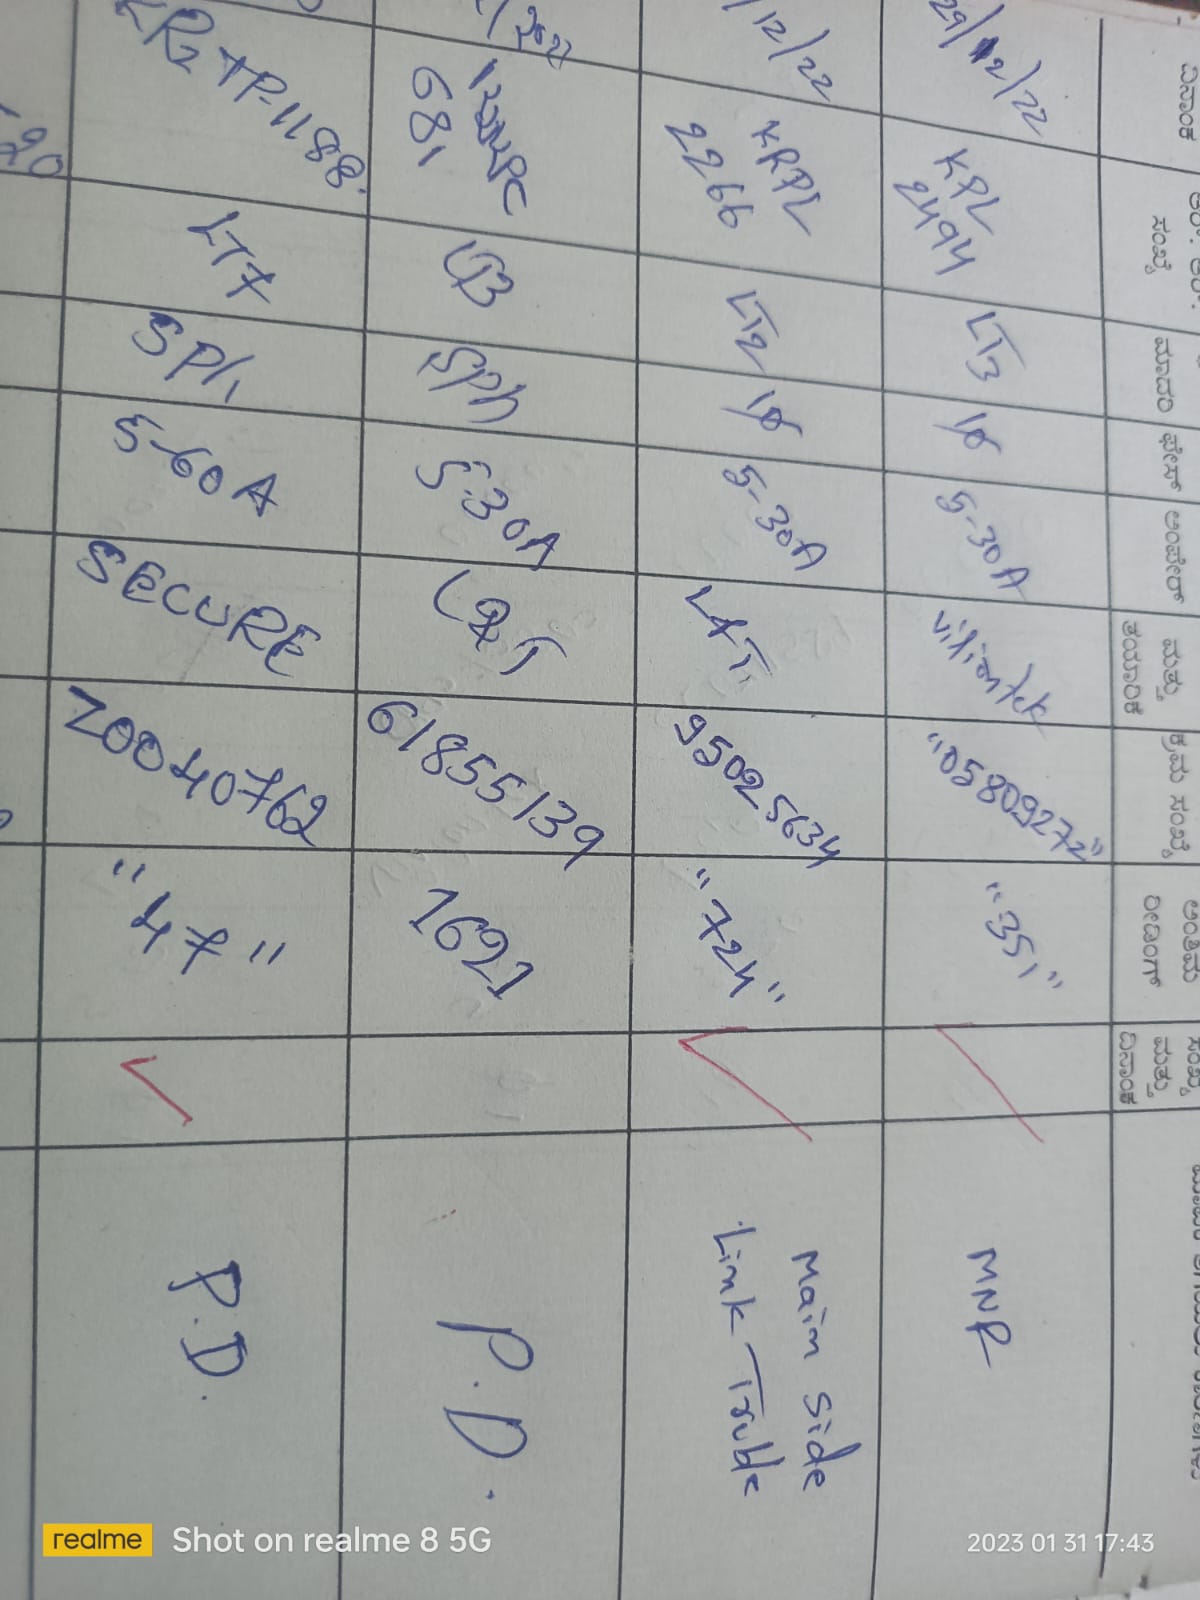 ದಿನಾಂಕ
ಸಂಖ್ಯೆ
ಫೇಸ್
ಮತ್ತು
ಕ್ರಮ ಸಂಖ್ಯೆ
ಅಂತಿಮ
ರೀಡಿಂಗ್
ಸಂಖ್ಯೆ
ಮತ್ತು
ದಿನಾಂಕ
29/12/22
KPL
2494
LT3
1ϕ
5-30A
"05809272"
"351"
MNR
/12/22
KRPL
2266
LT2
1ϕ
5-30A
L&T
95025634
"724"
Main Side
Link Truble
681
Sph
5-30A
L&T
61855139
1621
P.D.
KR2TP-1188
LT7
SPh
5-60A
SECURE
Z0040762
"47"
P.D.
realme
Shot on realme 8 5G
2023 01 31 17:43